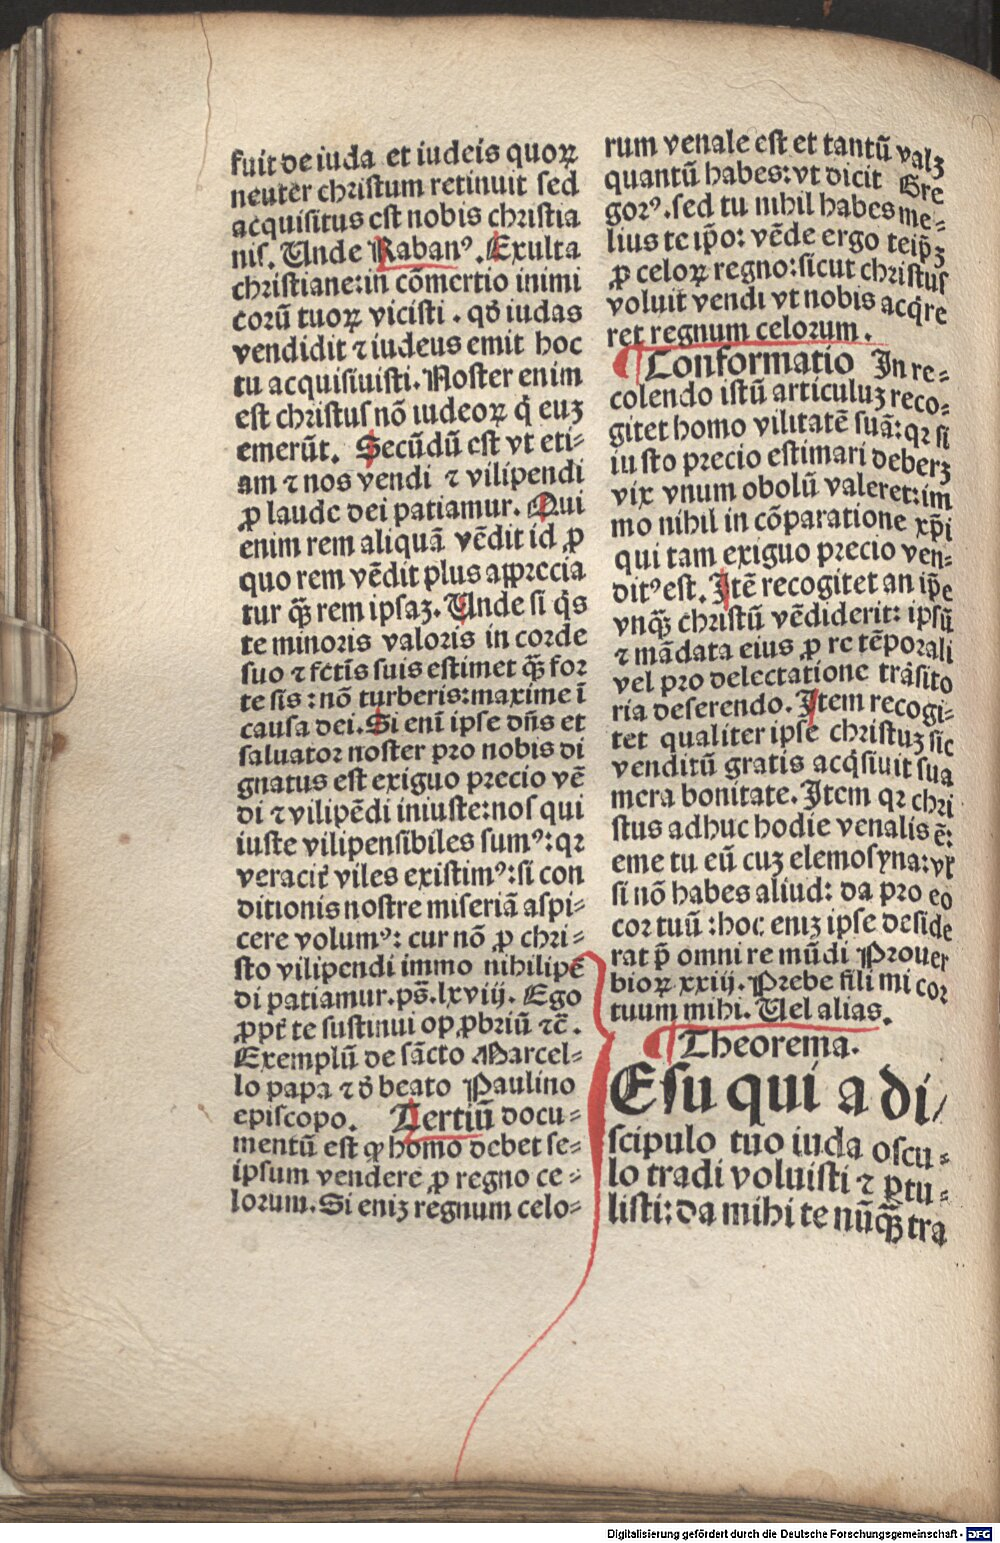 fuit de iuda et iudeis quoꝝ
neuter christum retinuit sed
acquisitus est nobis christia
nis. Unde Rabanꝰ. Exulta
christiane: in cōmertio inimi
corū tuoꝝ vicisti. qd̕ iudas
vendidit ⁊ iudeus emit hoc
tu acquisiuisti. Noster enim
est christus nō iudeoꝝ q̇ euꝫ
emerūt. Secūdū est vt eti⸗
am ⁊ nos vendi ⁊ vilipendi
ꝓ laude dei patiamur. Qui
enim rem aliquā vēdit id ꝓ
quo rem vēdit plus apprecia
tur qꝫ̄ rem ipsaꝫ. Unde si q̇s
te minoris valoris in corde
suo ⁊ fctīs suis estimet qꝫ̄ for
te sis: nō turberis: maxime ī
causa dei. Si enī ipse dn̄s et
saluator noster pro nobis di
gnatus est exiguo precio vē
di ⁊ vilipēdi iniuste: nos qui
iuste vilipensibiles sumꝰ: qꝛ
veracit̕ viles existimꝰ: si con
ditionis nostre miseriā aspi⸗
cere volumꝰ: cur nō ꝓ chri⸗
sto vilipendi immo nihilipē
di patiamur. ps̄. lxviij. Ego
ꝓpt̕ te sustinui opꝓbriū ⁊c̄.
Exemplū de sācto Marcel⸗
lo papa ⁊ d̕ beato Paulino
episcopo. Tertiū docu⸗
mentū est ꝙ homo debet se⸗
ipsum vendere ꝓ regno ce⸗
lorum. Si eniꝫ regnum celo⸗
rum venale est et tantū valꝫ
quantū habes: vt dicit Gre
gorꝰ. sed tu nihil habes me⸗
lius te ip̄o: vēde ergo teip̄ꝫ
ꝓ celoꝝ regno: sicut christus
voluit vendi vt nobis acq̇re
ret regnum celorum.
¶ Conformatio In re⸗
colendo istū articuluꝫ reco⸗
gitet homo vilitatē suā: qꝛ si
iusto precio estimari deberꝫ
vix vnum obolū valeret: im
mo nihil in cōparatione xp̄i
qui tam exiguo precio ven⸗
ditꝰ est. Itē recogitet an ip̄e
vnqꝫ̄ christū vēdiderit: ipsū
⁊ mādata eius ꝓ re tēporali
vel pro delectatione trāsito
ria deserendo. Item recogi⸗
tet qualiter ipse christuꝫ sic
venditū gratis acq̇siuit sua
mera bonitate. Item qꝛ chri
stus adhuc hodie venalis ē:
eme tu eū cuꝫ elemosyna: vꝉ
si nō habes aliud: da pro eo
cor tuū: hoc eniꝫ ipse deside
rat p̄ omni re mūdi Prouer
bioꝝ xxiij. Prebe fili mi cor
tuum mihi. Uel alias.
¶ Theorema.
Esu qui a di/
scipulo tuo iuda oscu⸗
lo tradi voluisti ⁊ ꝑtu⸗
listi: da mihi te nūqꝫ̄ tra
Digitalisierung gefördert durch die Deutsche Forschungsgemeinschaft - DFG